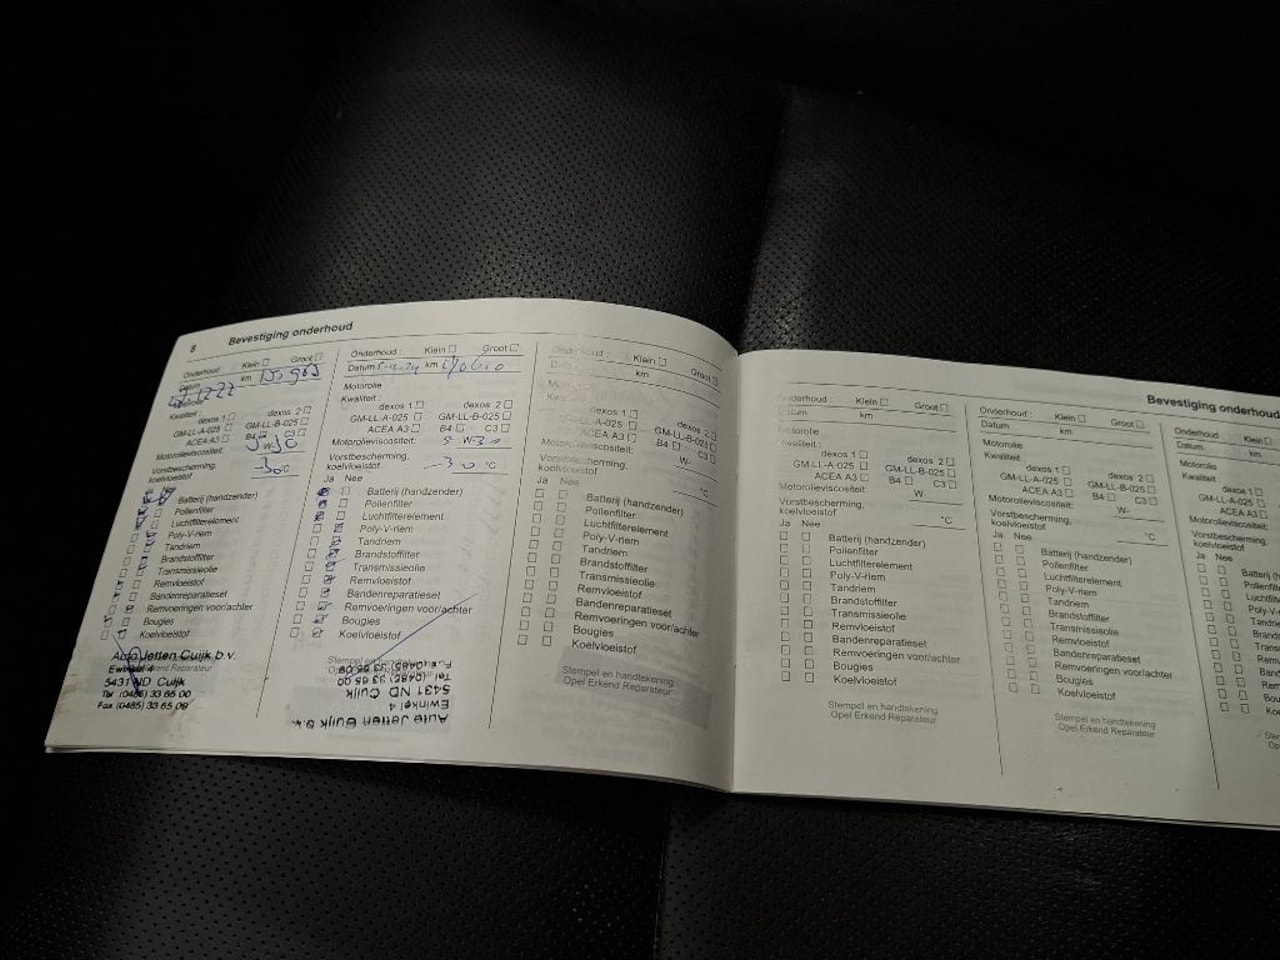 8 Bevestiging onderhoud
Onderhoud Klein ☐ Groot ☐
Datum km
Motorolie
Kwaliteit :
dexos 1 ☐ dexos 2 ☐
GM-LL-A-025 ☐ GM-LL-B-025 ☐
ACEA A3 ☐ B4 ☐ C3 ☐
Motorolieviscositeit: 5 W-30
Vorstbescherming,
koelvloeistof -30 °C
Ja Nee
Batterij (handzender)
Pollenfilter
Luchtfilterelement
Poly-V-riem
Tandriem
Brandstoffilter
Transmissieolie
Remvloeistof
Bandenreparatieset
Remvoeringen voor/achter
Bougies
Koelvloeistof
Auto Jetten Cuijk b.v.
Ewinkel 4
5431 ND Cuijk
Tel (0485) 33 65 00
Fax (0485) 33 65 09
Onderhoud : Klein ☐ Groot ☐
Datum 5-12-24 km
Motorolie
Kwaliteit :
dexos 1 ☐ dexos 2 ☐
GM-LL-A-025 ☐ GM-LL-B-025 ☐
ACEA A3 ☐ B4 ☐ C3 ☐
Motorolieviscositeit: 5 W-30
Vorstbescherming,
koelvloeistof -30 °C
Ja Nee
Batterij (handzender)
Pollenfilter
Luchtfilterelement
Poly-V-riem
Tandriem
Brandstoffilter
Transmissieolie
Remvloeistof
Bandenreparatieset
Remvoeringen voor/achter
Bougies
Koelvloeistof
Auto Jetten Cuijk b.v.
Ewinkel 4
5431 ND Cuijk
Tel (0485) 33 65 00
Fax (0485) 33 65 09
Onderhoud : Klein ☐ Groot ☐
Datum km
Motorolie
Kwaliteit :
dexos 1 ☐ dexos 2 ☐
GM-LL-A-025 ☐ GM-LL-B-025 ☐
ACEA A3 ☐ B4 ☐ C3 ☐
Motorolieviscositeit: W-
Vorstbescherming,
koelvloeistof °C
Ja Nee
Batterij (handzender)
Pollenfilter
Luchtfilterelement
Poly-V-riem
Tandriem
Brandstoffilter
Transmissieolie
Remvloeistof
Bandenreparatieset
Remvoeringen voor/achter
Bougies
Koelvloeistof
Stempel en handtekening
Opel Erkend Reparateur
Bevestiging onderhoud
Onderhoud : Klein ☐ Groot ☐
Datum km
Motorolie
Kwaliteit :
dexos 1 ☐ dexos 2 ☐
GM-LL-A-025 ☐ GM-LL-B-025 ☐
ACEA A3 ☐ B4 ☐ C3 ☐
Motorolieviscositeit: W-
Vorstbescherming,
koelvloeistof °C
Ja Nee
Batterij (handzender)
Pollenfilter
Luchtfilterelement
Poly-V-riem
Tandriem
Brandstoffilter
Transmissieolie
Remvloeistof
Bandenreparatieset
Remvoeringen voor/achter
Bougies
Koelvloeistof
Stempel en handtekening
Opel Erkend Reparateur
Onderhoud : Klein ☐ Groot ☐
Datum km
Motorolie
Kwaliteit
dexos 1 ☐ dexos 2 ☐
GM-LL-A-025 ☐ GM-LL-B-025 ☐
ACEA A3 ☐ B4 ☐ C3 ☐
Motorolieviscositeit: W-
Vorstbescherming,
koelvloeistof °C
Ja Nee
Batterij (handzender)
Pollenfilter
Luchtfilterelement
Poly-V-riem
Tandriem
Brandstoffilter
Transmissieolie
Remvloeistof
Bandenreparatieset
Remvoeringen voor/achter
Bougies
Koelvloeistof
Stempel en handtekening
Opel Erkend Reparateur
Onderhoud : Klein ☐
Datum km
Motorolie
Kwaliteit
dexos 1 ☐
GM-LL-A-025 ☐
ACEA A3 ☐
Motorolieviscositeit:
Vorstbescherming,
koelvloeistof
Ja Nee